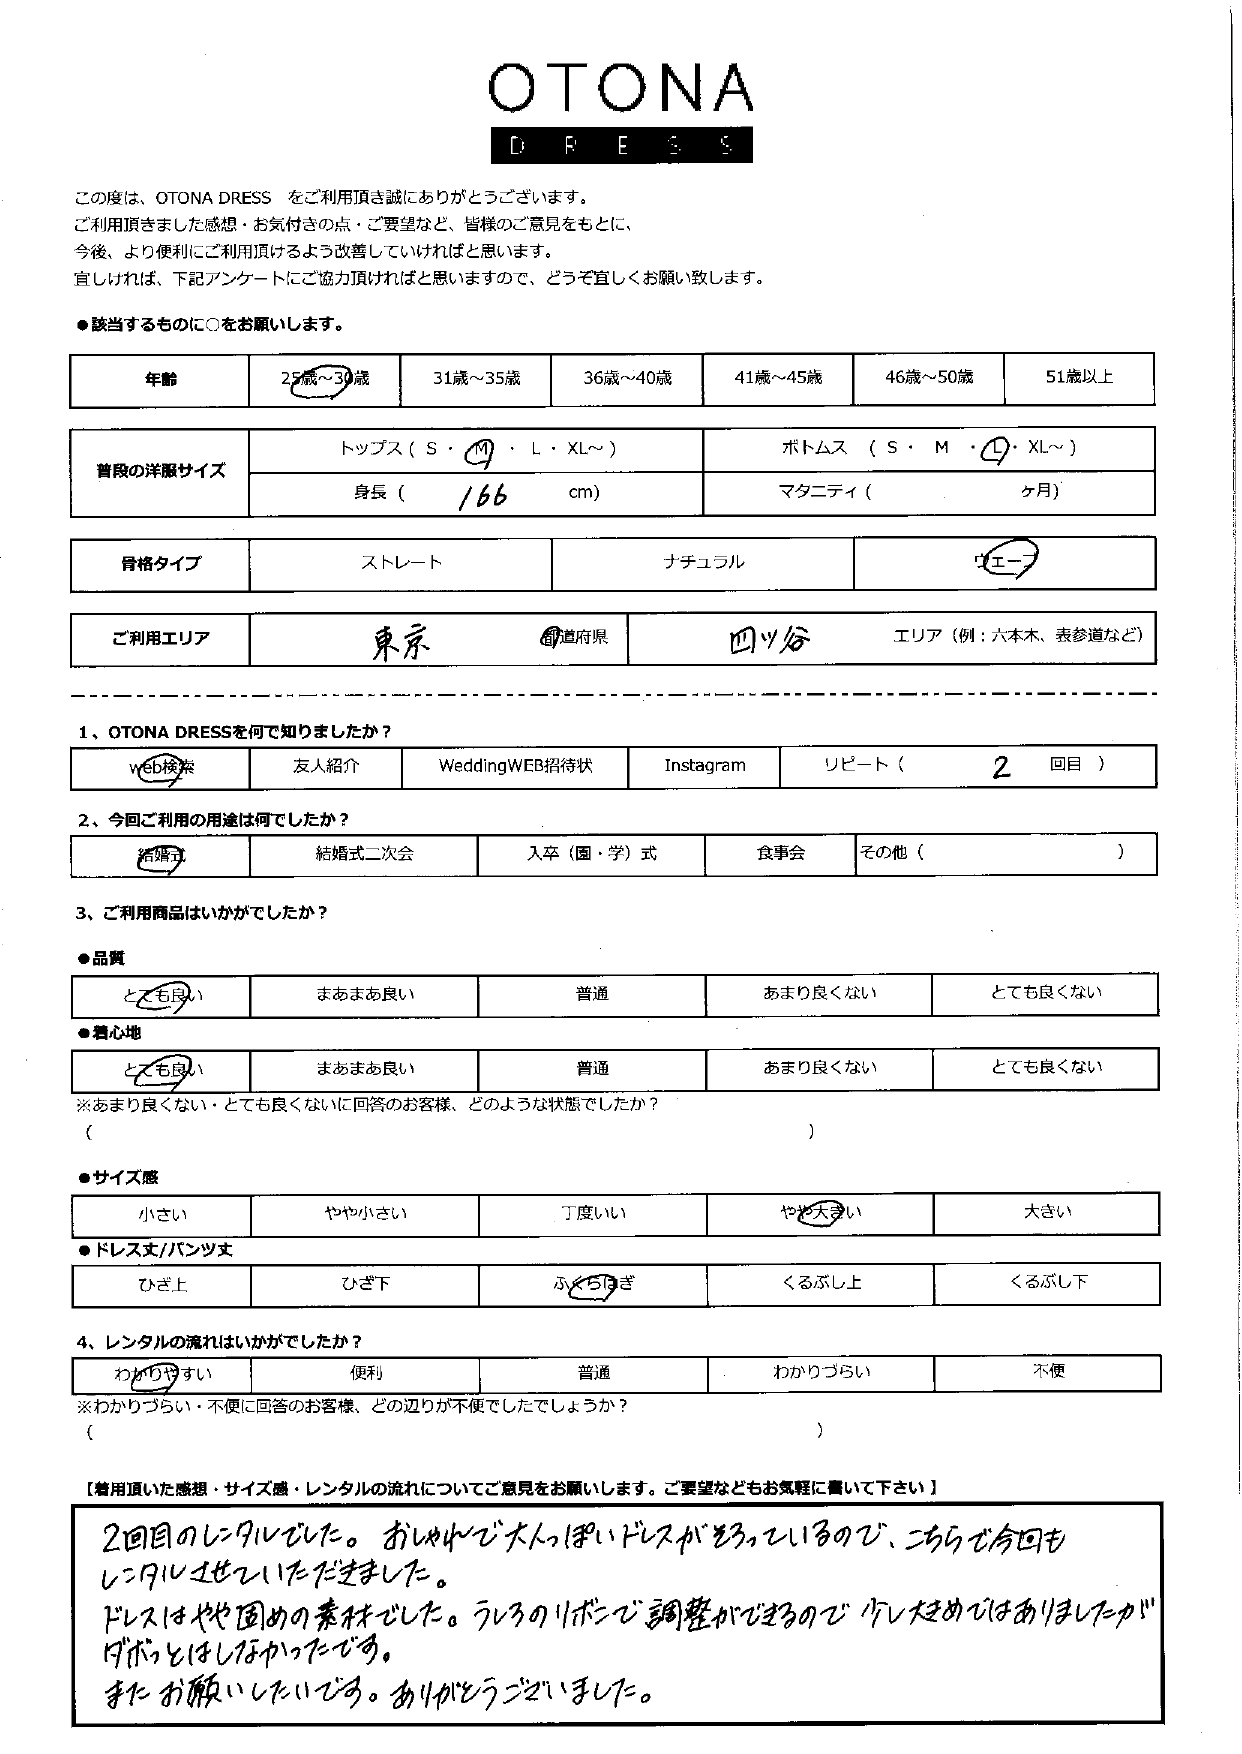 OTONA
DRESS
この度は、OTONA DRESS をご利用頂き誠にありがとうございます。
ご利用頂きました感想・お気付きの点・ご要望など、皆様のご意見をもとに、
今後、より便利にご利用頂けるよう改善していければと思います。
宜しければ、下記アンケートにご協力頂ければと思いますので、どうぞ宜しくお願い致します。
●該当するものに○をお願いします。
年齢 25歳～30歳 31歳～35歳 36歳～40歳 41歳～45歳 46歳～50歳 51歳以上
普段の洋服サイズ トップス ( S ・ M ・ L ・ XL～ ) ボトムス ( S ・ M ・ L ・ XL～ )
身長 ( 166 cm) マタニティ ( ヶ月)
骨格タイプ ストレート ナチュラル ウェーブ
ご利用エリア 東京 都道府県 四ツ谷 エリア（例：六本木、表参道など）
1、OTONA DRESSを何で知りましたか？
web検索 友人紹介 WeddingWEB招待状 Instagram リピート（ 2 回目 ）
2、今回ご利用の用途は何でしたか？
結婚式 結婚式二次会 入卒（園・学）式 食事会 その他（ ）
3、ご利用商品はいかがでしたか？
●品質
とても良い まあまあ良い 普通 あまり良くない とても良くない
●着心地
とても良い まあまあ良い 普通 あまり良くない とても良くない
※あまり良くない・とても良くないに回答のお客様、どのような状態でしたか？
（ ）
●サイズ感
小さい やや小さい 丁度いい やや大きい 大きい
●ドレス丈/パンツ丈
ひざ上 ひざ下 ふくらはぎ くるぶし上 くるぶし下
4、レンタルの流れはいかがでしたか？
わかりやすい 便利 普通 わかりづらい 不便
※わかりづらい・不便に回答のお客様、どの辺りが不便でしたでしょうか？
（ ）
【着用頂いた感想・サイズ感・レンタルの流れについてご意見をお願いします。ご要望などもお気軽に書いて下さい】
2回目のレンタルでした。おしゃれで大人っぽいドレスがそろっているので、こちらで今回も
レンタルさせていただきました。
ドレスはやや固めの素材でした。うしろのリボンで調整ができるので少し大きめではありましたが
ダボっとはしなかったです。
またお願いしたいです。ありがとうございました。